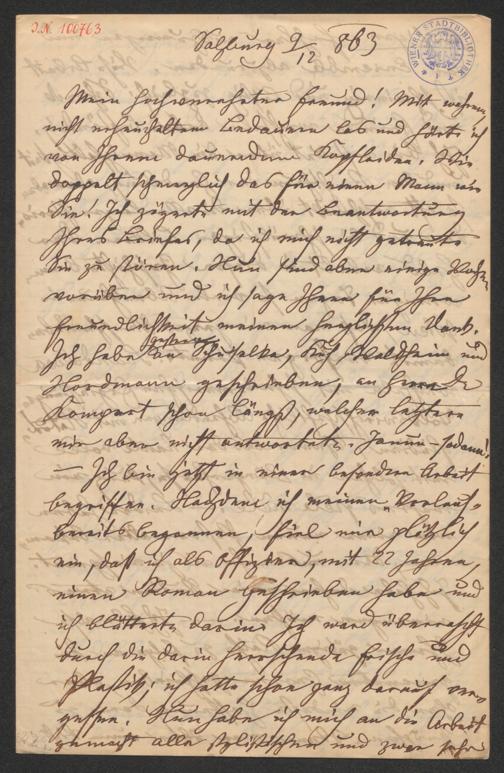 J.N. 100763
WIENER STADTBIBLIOTHEK
Salzburg 9/12 863
Mein hochverehrter Freund! Mit wahrem,
nicht erheucheltem Bedauern las und hörte ich
von Ihrem dauernden Kopfleiden. Wie
doppelt schmerzlich das für einen Mann wie
Sie! Ich zögerte mit der Beantwortung
Ihres Briefes, da ich mich nicht getraute
Sie zu stören. Nun sind aber einige Wochen
vorüber und ich sage Ihnen für Ihre
Freundlichkeit meinen herzlichsten Dank.
Ich habe gestern an Schuselka, Waldheim und
Nordmann geschrieben, an Herrn de
Kompert schon längst, welcher letztere
mir aber nicht antwortete.
— Ich bin jetzt in einer besondern Arbeit
begriffen. Nachdem ich meinen
bereits begonnen, fiel mir plötzlich
ein, daß ich als Offizier, mit 22 Jahren,
einen Roman geschrieben habe und
ich blätterte darin. Ich ward überrascht
durch die darin herrschende Frische und
Plastik; ich hatte schon ganz darauf ver-
gessen. Nun habe ich mich an die Arbeit
gemacht alle stylistischen und zwar sehr